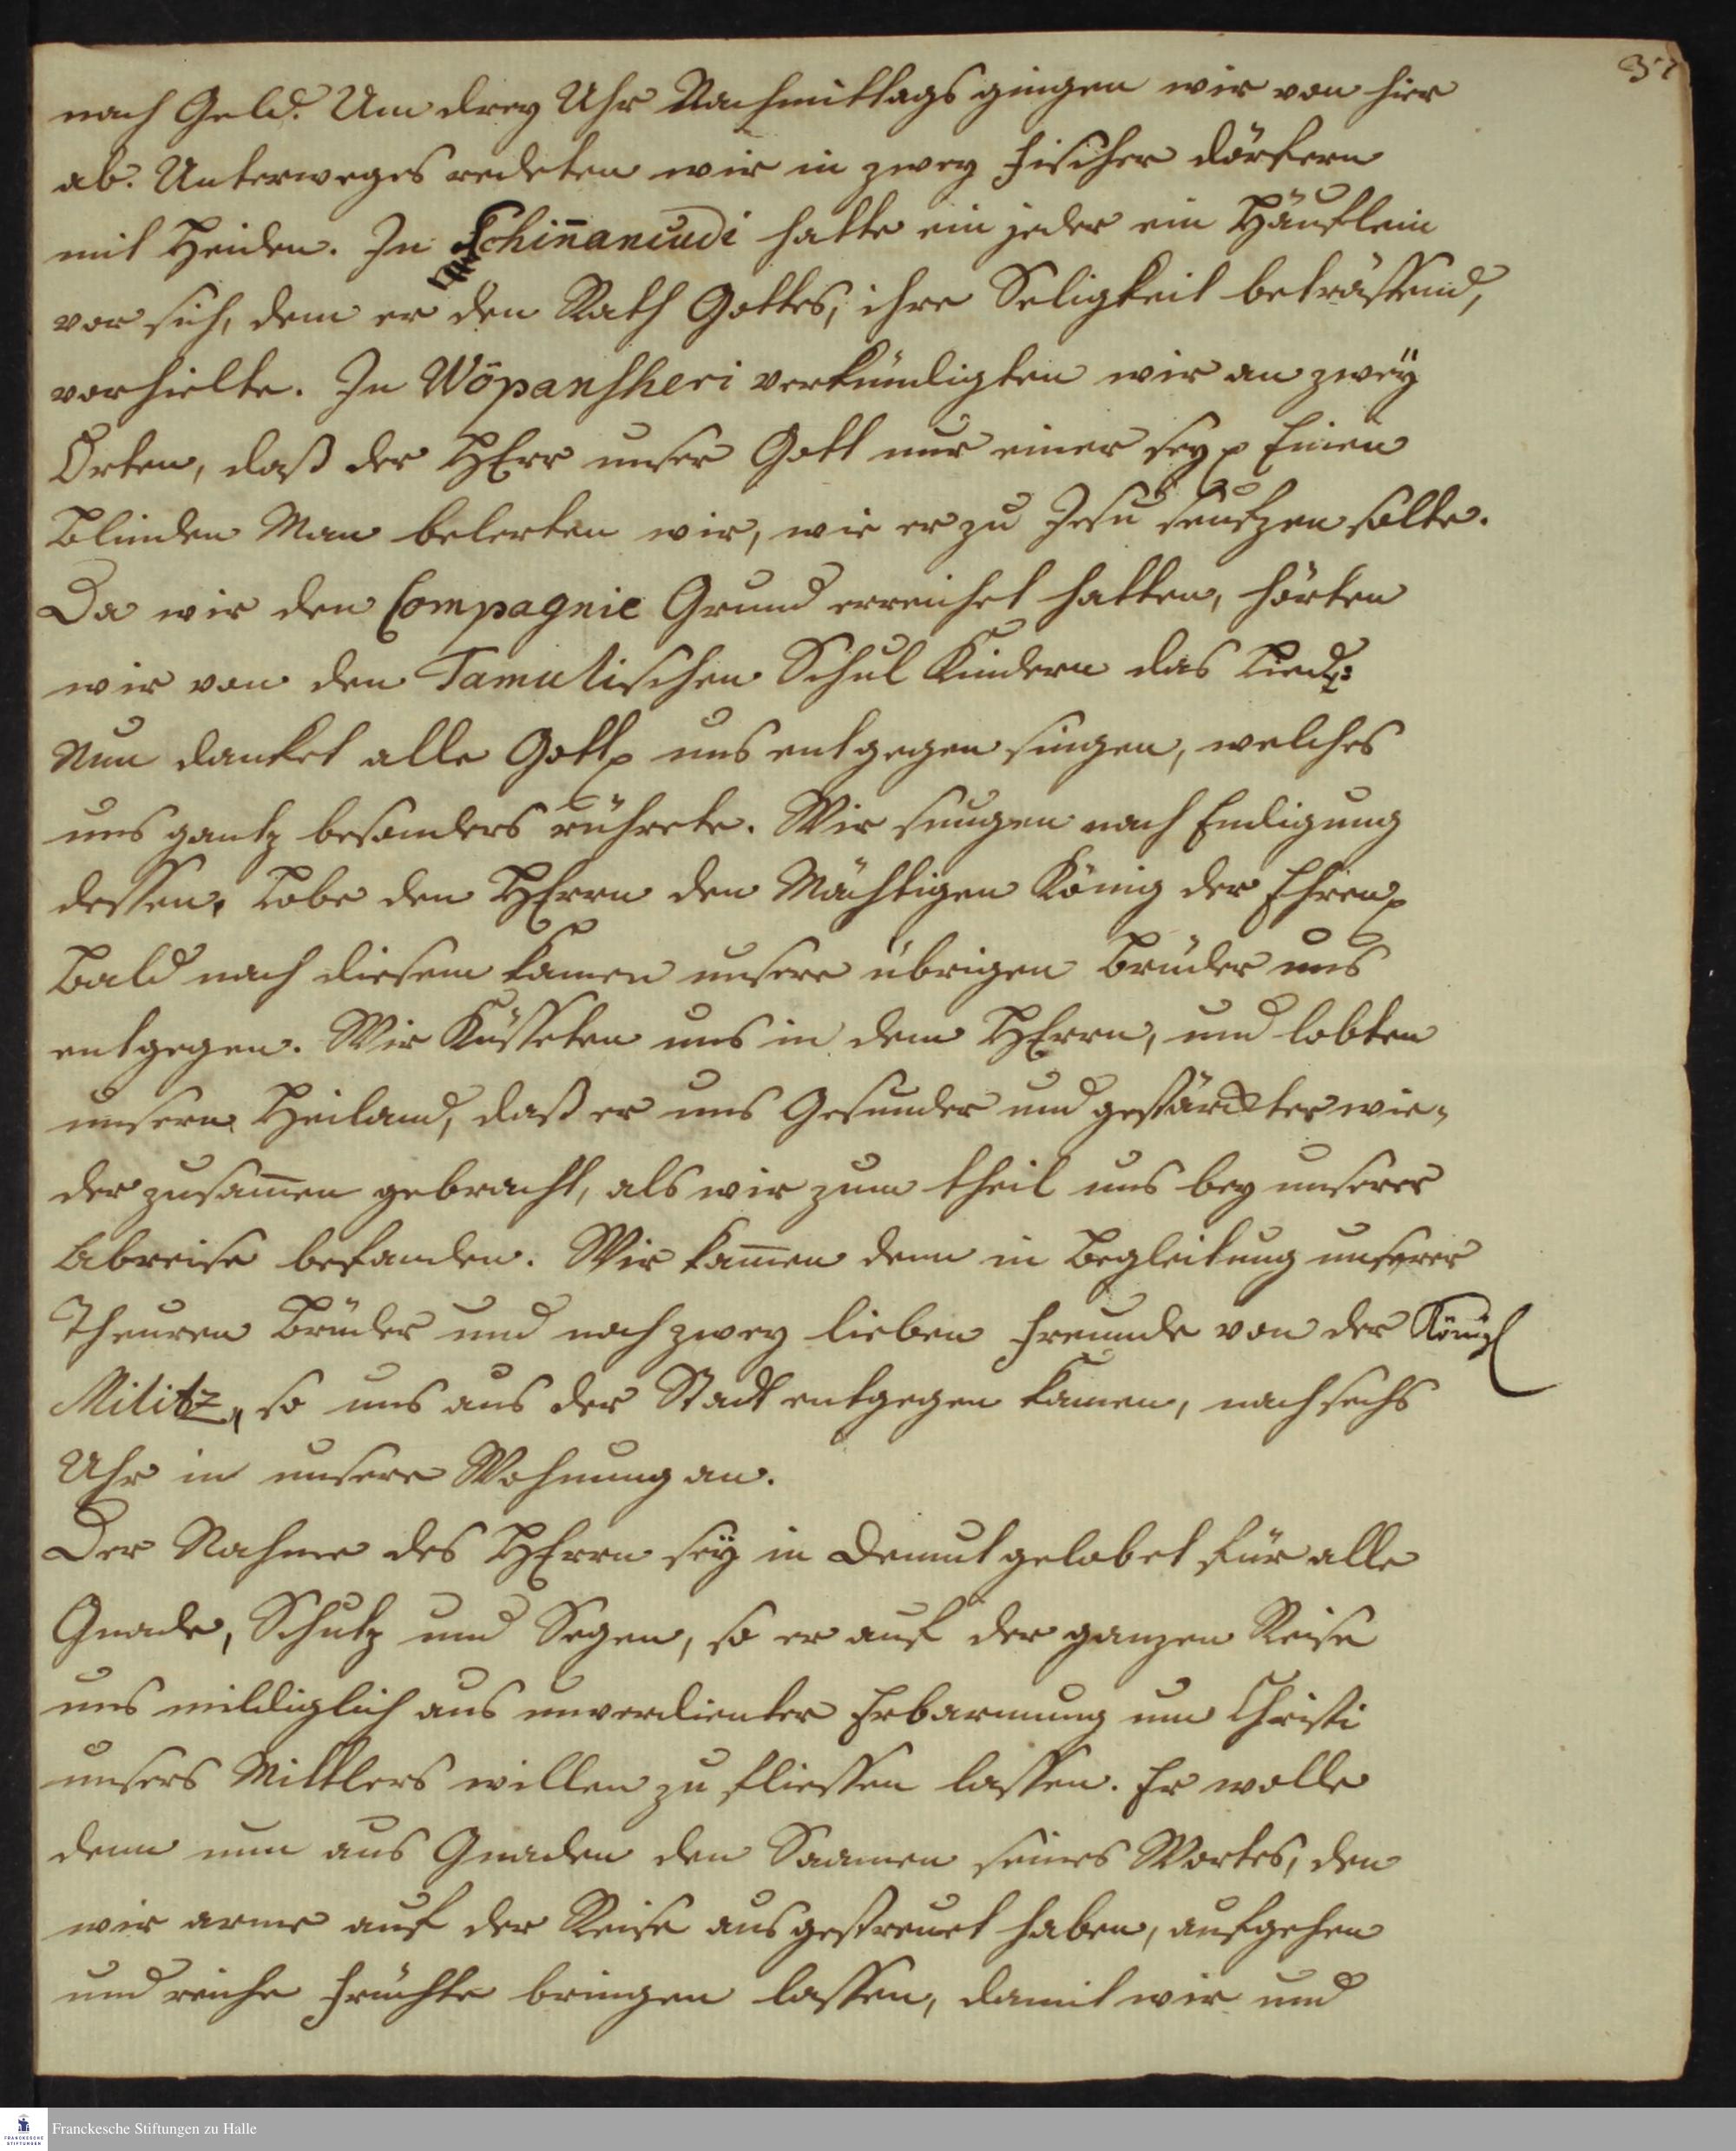 37
nach Geld. Um drey Uhr Nachmittags gingen wir von hier
ab. Unterweges redeten wir in zwey Fischer dörfern
mit Heiden. In Schin̄ancudi hatte ein jeder ein Häuflein
vor sich, dem er den Rath Gottes, ihre Seligkeit beträffend,
vorhielte. In Wöpansheri verkündigten wir an zweÿ
Orten, daß der HErr unser Gott nur einer sey. Einen
Blinden Man belerten wir, wie er zu Jesu seufzen solte.
Da wir den Compagnie Grund erreichet hatten, hörten
wir von den Tamulischen Schul Kindern das Lied:
Nun danket alle Gott uns entgegen singen, welches
uns gantz besonders rührete. Wir sungen nach Endigung
dessen, Lobe den HErrn den Mächtigen König der Ehren
Bald nach diesem kamen unsere übrigen Brüder uns
entgegen. Wir Küsseten uns in dem HErrn, und lobten
unsern Heiland, daß er uns Gesunder und gestärckter wie„
der zusam̄en gebracht, als wir zum theil uns bey unserer
Abreise befanden. Wir kam̄en denn in Begleitung unserer
Theuren Brüder und noch zwey lieben Freunde von der Königl
Militz, so uns aus der Stadt entgegen kamen, nach sechs
Uhr in unsere Wohnung an.
Der Nahme des HErrn seÿ in Demut gelobet für alle
Gnade, Schutz und Segen, so er auf der ganzen Reise
uns mildiglich aus unverdienter Erbarmung um Christi
unsers Mittlers willen zu fliessen lassen. Er wolle
denn nun aus Gnaden den Saamen seines Wortes, den
wir arme auf der Reise ausgestreuet haben, aufgehen
und reiche Früchte bringen lassen, damit wir und
Franckesche Stiftungen zu Halle